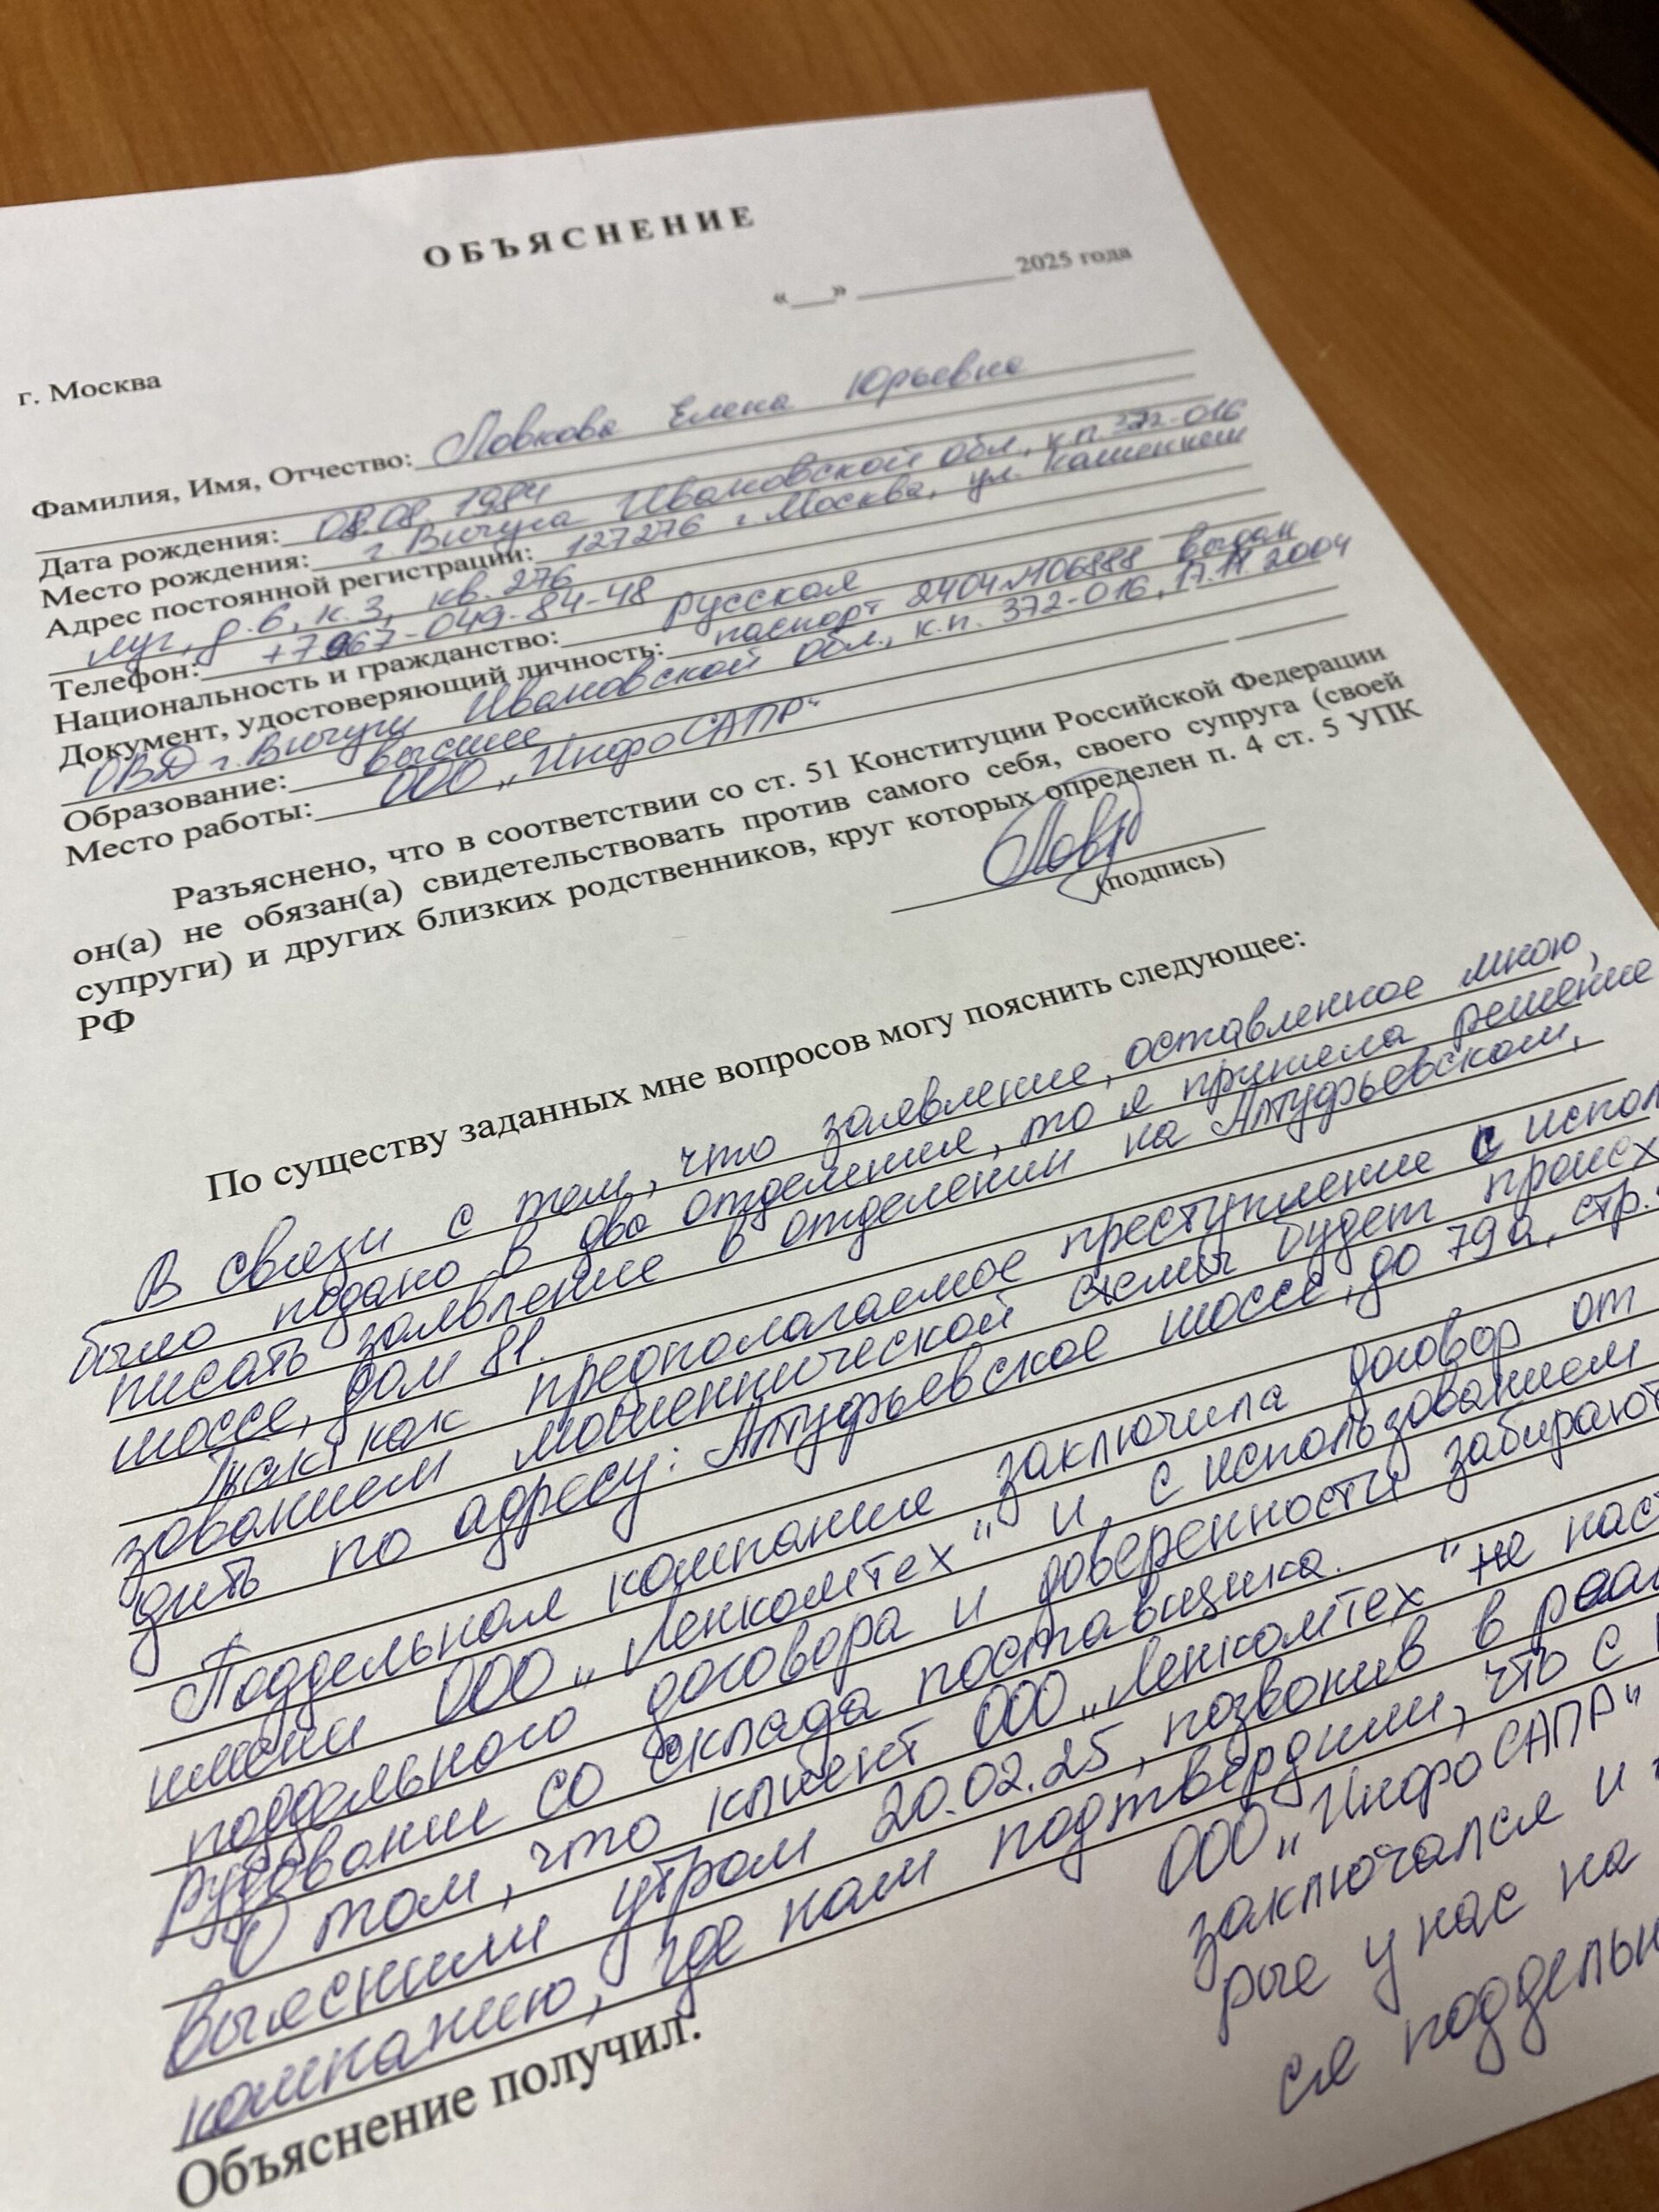 ОБЪЯСНЕНИЕ
«___» ____________ 2025 года
г. Москва
Фамилия, Имя, Отчество: Ловкова Елена Юрьевна
Дата рождения: 08.08.1984
Место рождения: г. Вичуга Ивановской обл., к.п. 372-016
Адрес постоянной регистрации: 127276 г. Москва, ул. Кашенкин
луг, д.6, к.3, кв. 276
Телефон: +7967-049-84-48
Национальность и гражданство: русская
Документ, удостоверяющий личность: паспорт 2404 № 106888 выдан
ОВД г. Вичуги Ивановской обл., к.п. 372-016, 17.11 2004
Образование: высшее
Место работы: ООО „ИнфоСАПР"
Разъяснено, что в соответствии со ст. 51 Конституции Российской Федерации
он(а) не обязан(а) свидетельствовать против самого себя, своего супруга (своей
супруги) и других близких родственников, круг которых определен п. 4 ст. 5 УПК
РФ
(подпись)
По существу заданных мне вопросов могу пояснить следующее:
В связи с тем, что заявление, оставленное мною,
было подано в два отделения, то я приняла решение
писать заявление в отделении на Алтуфьевском,
шоссе, дом 81.
Так как предполагаемое преступление с исполь
зованием мошеннической схемы будет происх
дить по адресу: Алтуфьевское шоссе, до 79а, стр.
Поддельная компания заключила договор от
имени ООО „Ленкомтех" и с использованием
поддельного договора и доверенности забирают
рудование со склада поставщика.
О том, что клиент ООО „Ленкомтех" не наст
выяснили утром 20.02.25, позвонив в реал
компанию, где нам подтвердили, что с
ООО „ИнфоСАПР"
заключался и
рые у нас на
ся поддельн
Объяснение получил: